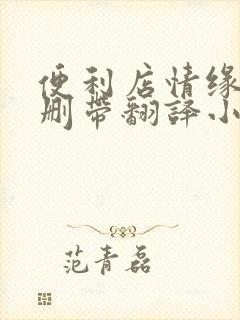 便利店情缘
删带翻译小
范青磊